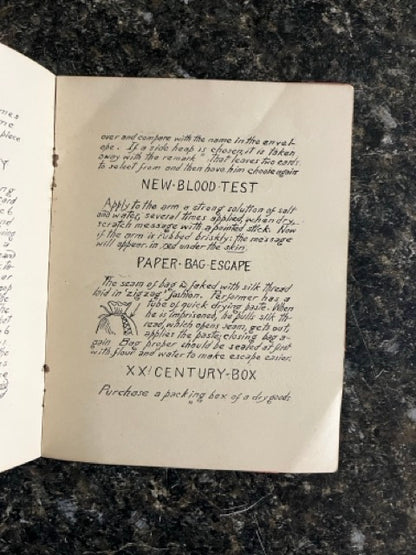 over and compare with the name in the envel-
ope. If a side heap is chosen, it is taken
away with the remark "that leaves two cards
to select from and then have him choose again
NEW·BLOOD·TEST
Apply to the arm a strong solution of salt
and water, several times applied, when dry,
scratch message with a pointed stick. Now
if the arm is rubbed briskly: the message
will appear in red under the skin.
PAPER·BAG·ESCAPE
The seam of bag is faked with silk thread
laid in "zigzag" fashion. Performer has a
tube of quick drying paste. When
he is imprisoned, he pulls silk th-
read, which opens seam, gets out,
applies the paste; closing bag a-
gain. Bag proper should be sealed at first
with flour and water to make escape easier.
XXTH CENTURY·BOX
Purchase a packing box of a dry goods